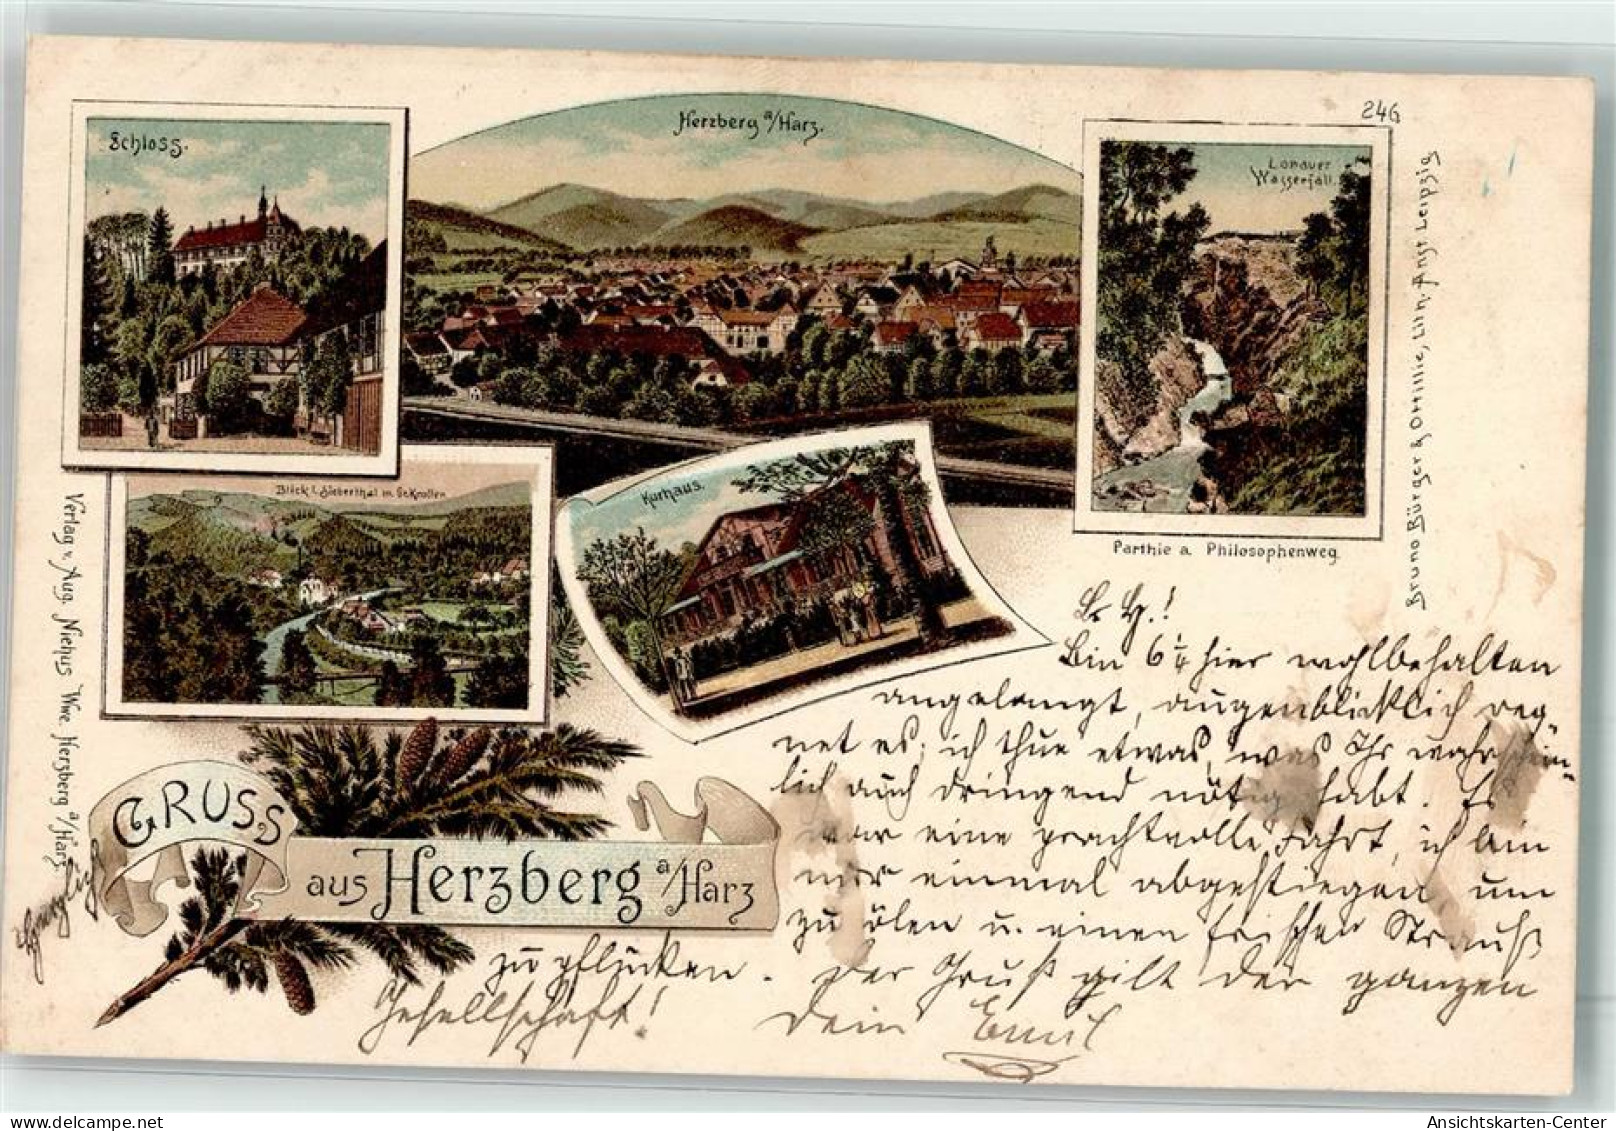 246
Schloss.
Herzberg a/Harz.
Lonauer
Wasserfall.
Parthie a. Philosophenweg.
Blick i. Sieberthal m. Gr. Knollen
Kurhaus.
Bruno Bürger & Ottillie, Lith. Anst. Leipzig
Verlag v. Aug. Niehus Wwe. Herzberg a/Harz
GRUSS
aus Herzberg a/Harz
L. H.!
Bin 6 1/4 hier wohlbehalten
angelangt, augenblicklich reg-
net es; ich thue etwas, was Ihr wahrschein-
lich auch dringend nötig habt. Es
war eine prachtvolle Fahrt, ich bin
nur einmal abgestiegen, um
zu ölen u. einen frischen Strauß
zu pflücken. Der Gruß gilt der ganzen
Gesellschaft! Dein Emil
Herzlich
Ansichtskarten-Center